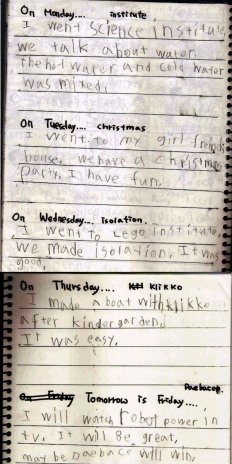 On Monday.... institute.
I went science institute
we talk about water.
the hot water and cold water
was mixed.
On Tuesday.... christmas
I went to my girl friend
house. we have a christmas
party. I have fun.
On Wednesday.... isolation.
I went to Lego institute.
We made isolation. It was
good.
On Thursday.... klikko
I made a boat with klikko
after kindergarden.
It was easy.
Daebace.
On Friday Tomorrow is Friday....
I will watch robot power in
tv. It will Be great.
may be Daebace will win.